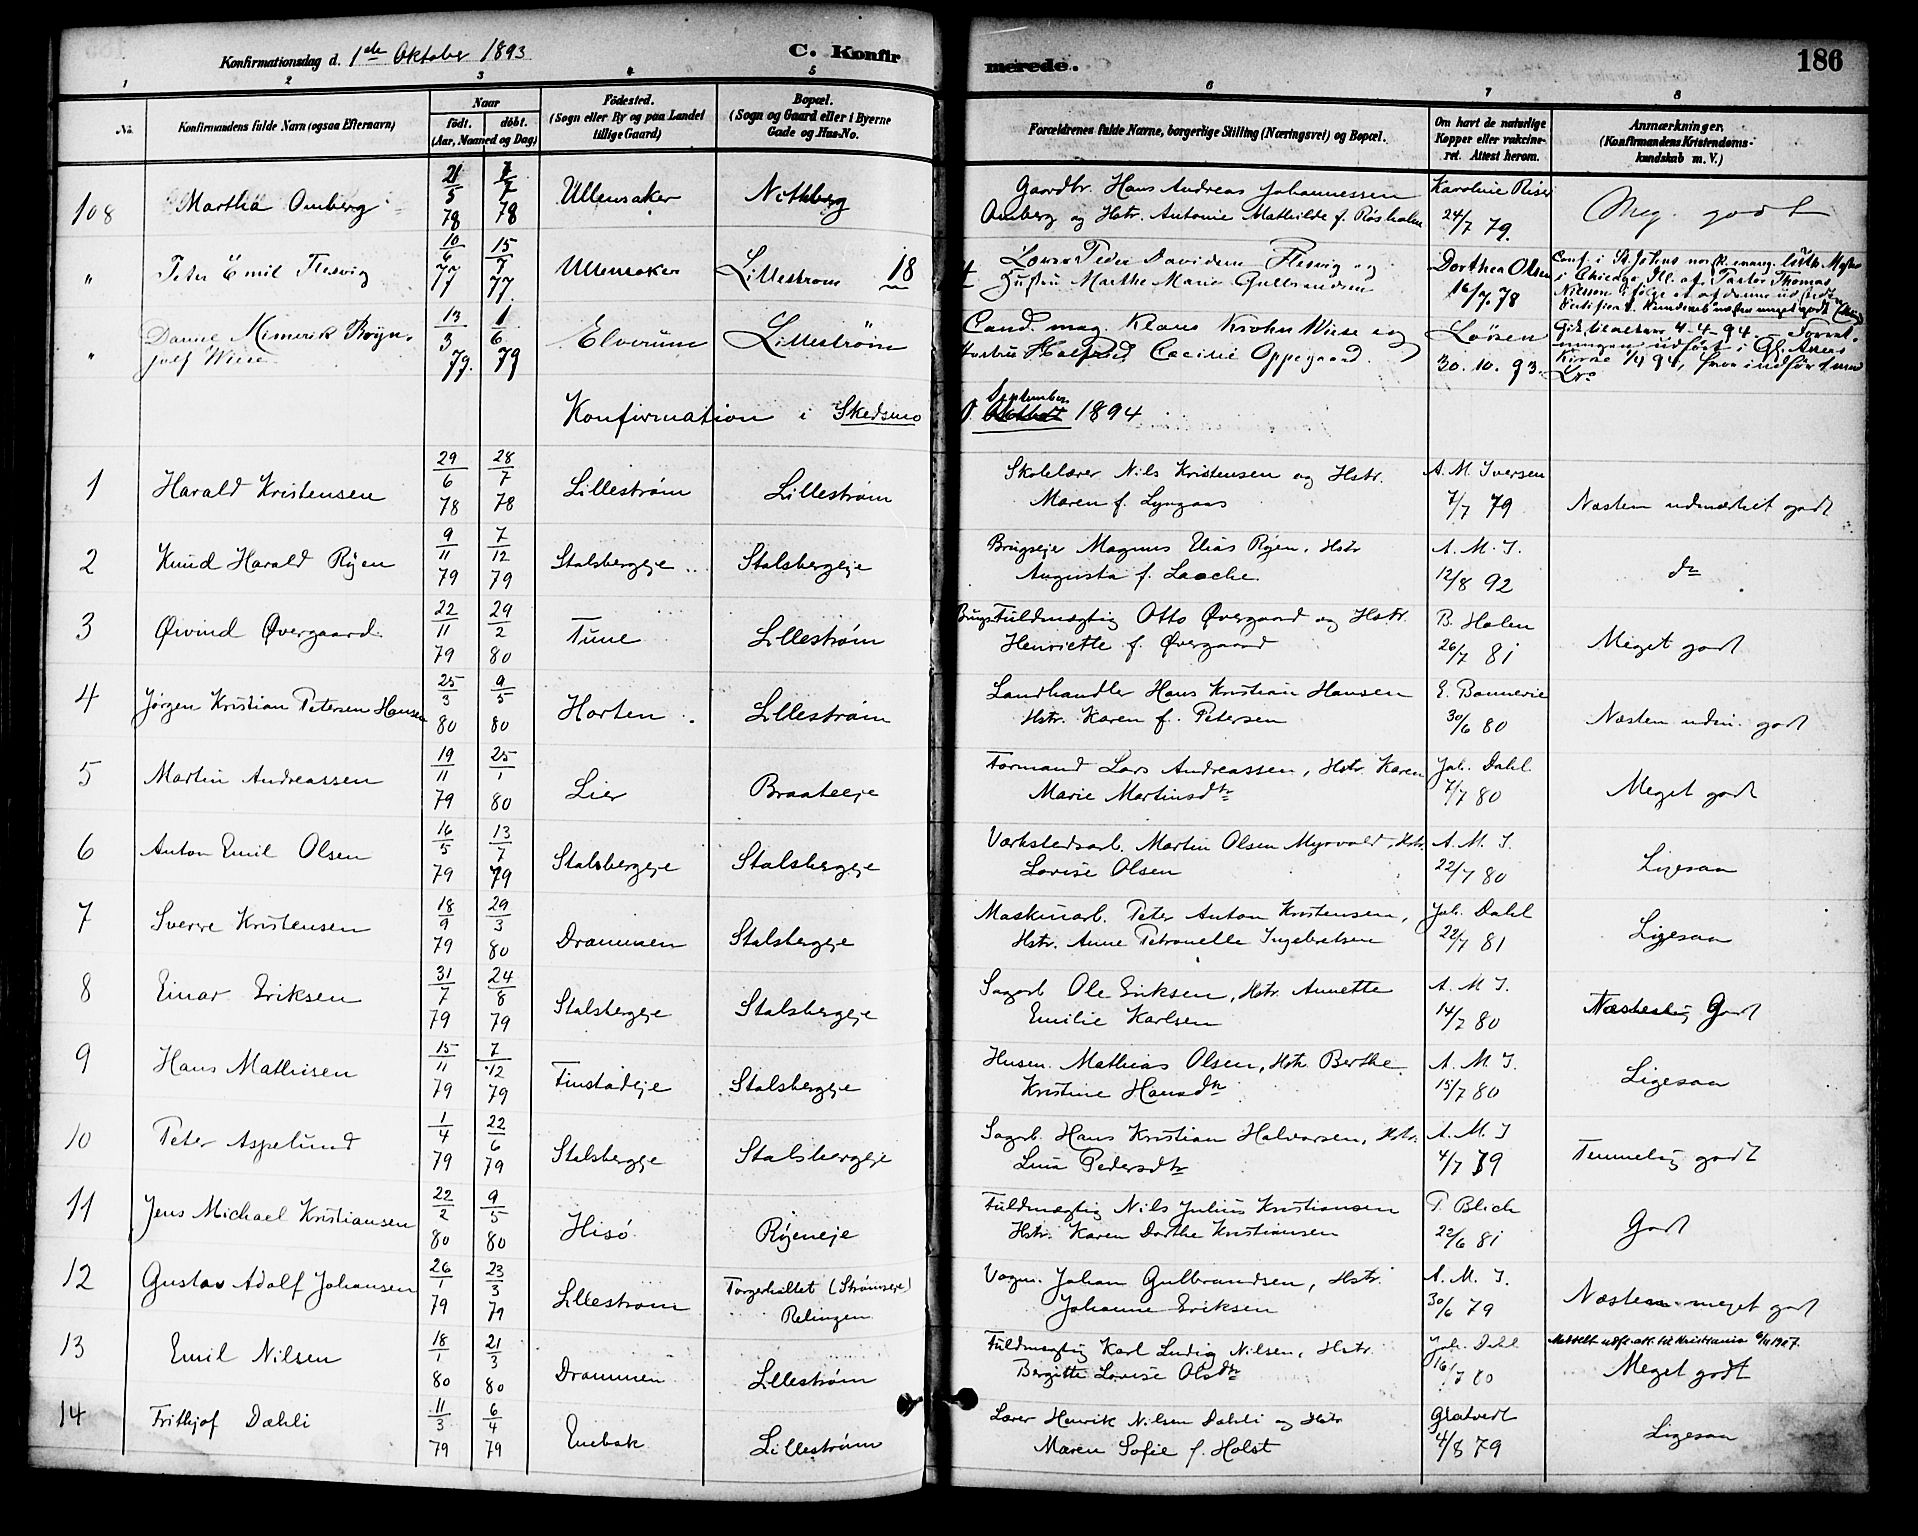 Konfirmationsdag d. 1ste Oktober 1893
C. Konfirmerede.
186
1 2 3 4 5 6 7 8
No.
Konfirmandens fulde Navn (ogsaa Efternavn)
Naar
født. døbt.
(Aar, Maaned og Dag)
Fødested.
(Sogn eller By og paa Landet
tillige Gaard)
Bopæl.
(Sogn og Gaard eller i Byerne
Gade og Hus-No.
Forældrenes fulde Navne, borgerlige Stilling (Næringsvei) og Bopæl.
Om havt de naturlige
Kopper eller vakcine-
ret. Attest herom.
Anmærkninger
(Konfirmandens Kristendoms-
kundskab m. V.)
108 Martha Omberg 21/5 78 78 Ullensaker Nithberg
Gaardbr. Hans Andreas Johannessen
Omberg og Hstr. Antonie Mathilde f. Røsholm
Karoline Riser
24/7 79.
Meg. godt
" Peter Emil Flesvig 10/6 77 15/7 77 Ullensaker Lillestrøm 18
Peder Davidsen Flesvig og
Hustru Marthe Marie Gulbrandsen
Dorthea Olsen
16/7 78
Conf. i St. Johns norsk evang. luth. Mgh
i Chicago Ill. af Pastor Thomas
Nilsson ifølge et af denne udstedt
" Wiese 13/3 79. 1/6 79 Elverum Lillestrøm
Cand. mag. Klaus Krohn Wiese og
Hustru Halfred Cæcilie Oppegaard.
Løken
30. 10. 93.
4-4-94
Konfirmation i Skedsmo September 1894
1 Harald Kristensen 29/6 78 28/7 78 Lillestrøm Lillestrøm
Skolelærer Nils Kristensen og Hstr.
Maren f. Lyngaas
A. M. Iversen
7/7 79
Næsten udmærket godt
2 Knud Harald Røjen 9/11 79 7/12 79 Stalsbergeje Stalsbergeje
Brugseje Magnus Elias Røjen, Hstr
Augusta f. Laache.
A. M. I.
12/8 92
do
3 Øivind Øvergaard 22/11 79 29/2 80 Tune Lillestrøm
Brugsfuldmægtig Otto Øvergaard og Hstr.
Henriette f. Øvergaard
B. Holen
26/7 81
Meget godt
4 Jørgen Kristian Petersen Hansen 25/3 80 9/5 80 Horten Lillestrøm
Landhandler Hans Kristian Hansen
Hstr. Karen f. Petersen
E. Bonnevie
30/6 80
Næsten udm. godt
5 Martin Andreassen 19/11 79 25/1 80 Lier Braateeje
Formand Lars Andreassen, Hstr. Karen
Marie Martinsdtr
Joh. Dahl
7/7 80
Meget godt
6 Anton Emil Olsen 16/5 79 13/7 79 Stalsbergeje Stalsbergeje
Værkstedsarb. Martin Olsen Myrvold, Hstr.
Lovise Olsen
A. M. I.
22/7 80
Ligesaa
7 Sverre Kristensen 18/9 79 29/3 80 Drammen Stalsbergeje
Maskinarb. Peter Anton Kristensen,
Hstr. Anne Petronelle Ingebretsen
Joh. Dahl
22/7 81
Ligesaa
8 Einar Eriksen 31/7 79 24/8 79 Stalsbergeje Stalsbergeje
Sagarb Ole Eriksen, Hstr. Annette
Emilie Karlsen
A. M I.
14/7 80
Godt
9 Hans Mathisen 15/11 79 7/12 79 Finstadeje Stalsbergeje
Husm. Mathias Olsen, Hstr. Berthe
Kristine Hansdtr
A. M. I.
15/7 80
Ligesaa
10 Peter Aspelund 1/4 79 22/6 79 Stalsbergeje Stalsbergeje
Sagarb. Hans Kristian Halvorsen, Hstr.
Lina Pedersdtr
A. M. I
4/7 79
Temmelig godt
11 Jens Michael Kristiansen 22/2 80 9/5 80 Hisø Røjeneje
Fuldmægtig Nils Julius Kristiansen
Hstr. Karen Dorthe Kristiansen
P. Blich
22/6 81
Godt
12 Gustav Adolf Johansen 26/1 79 23/3 79 Lillestrøm Torgerhullet (Strømseje)
Relingen
Vogm. Johan Gulbrandsen, Hstr.
Johanne Eriksen
A. M. I.
30/6 79
Næsten meget godt
13 Emil Nilsen 18/1 80 21/3 80 Drammen Lillestrøm
Fuldmægtig Karl Ludvig Nilsen, Hstr.
Bergitte Lovise Olsdtr
Joh. Dahl
16/7 80
Meldt udfl. att. til Kristiania 6/11 1907.
Meget godt
14 Frithjof Dæhli 11/3 79 6/4 79 Enebak Lillestrøm
Lærer Henrik Nilsen Dæhli og Hstr
Maren Sofie f. Holst
Gratvedt
4/8 79
Ligesaa